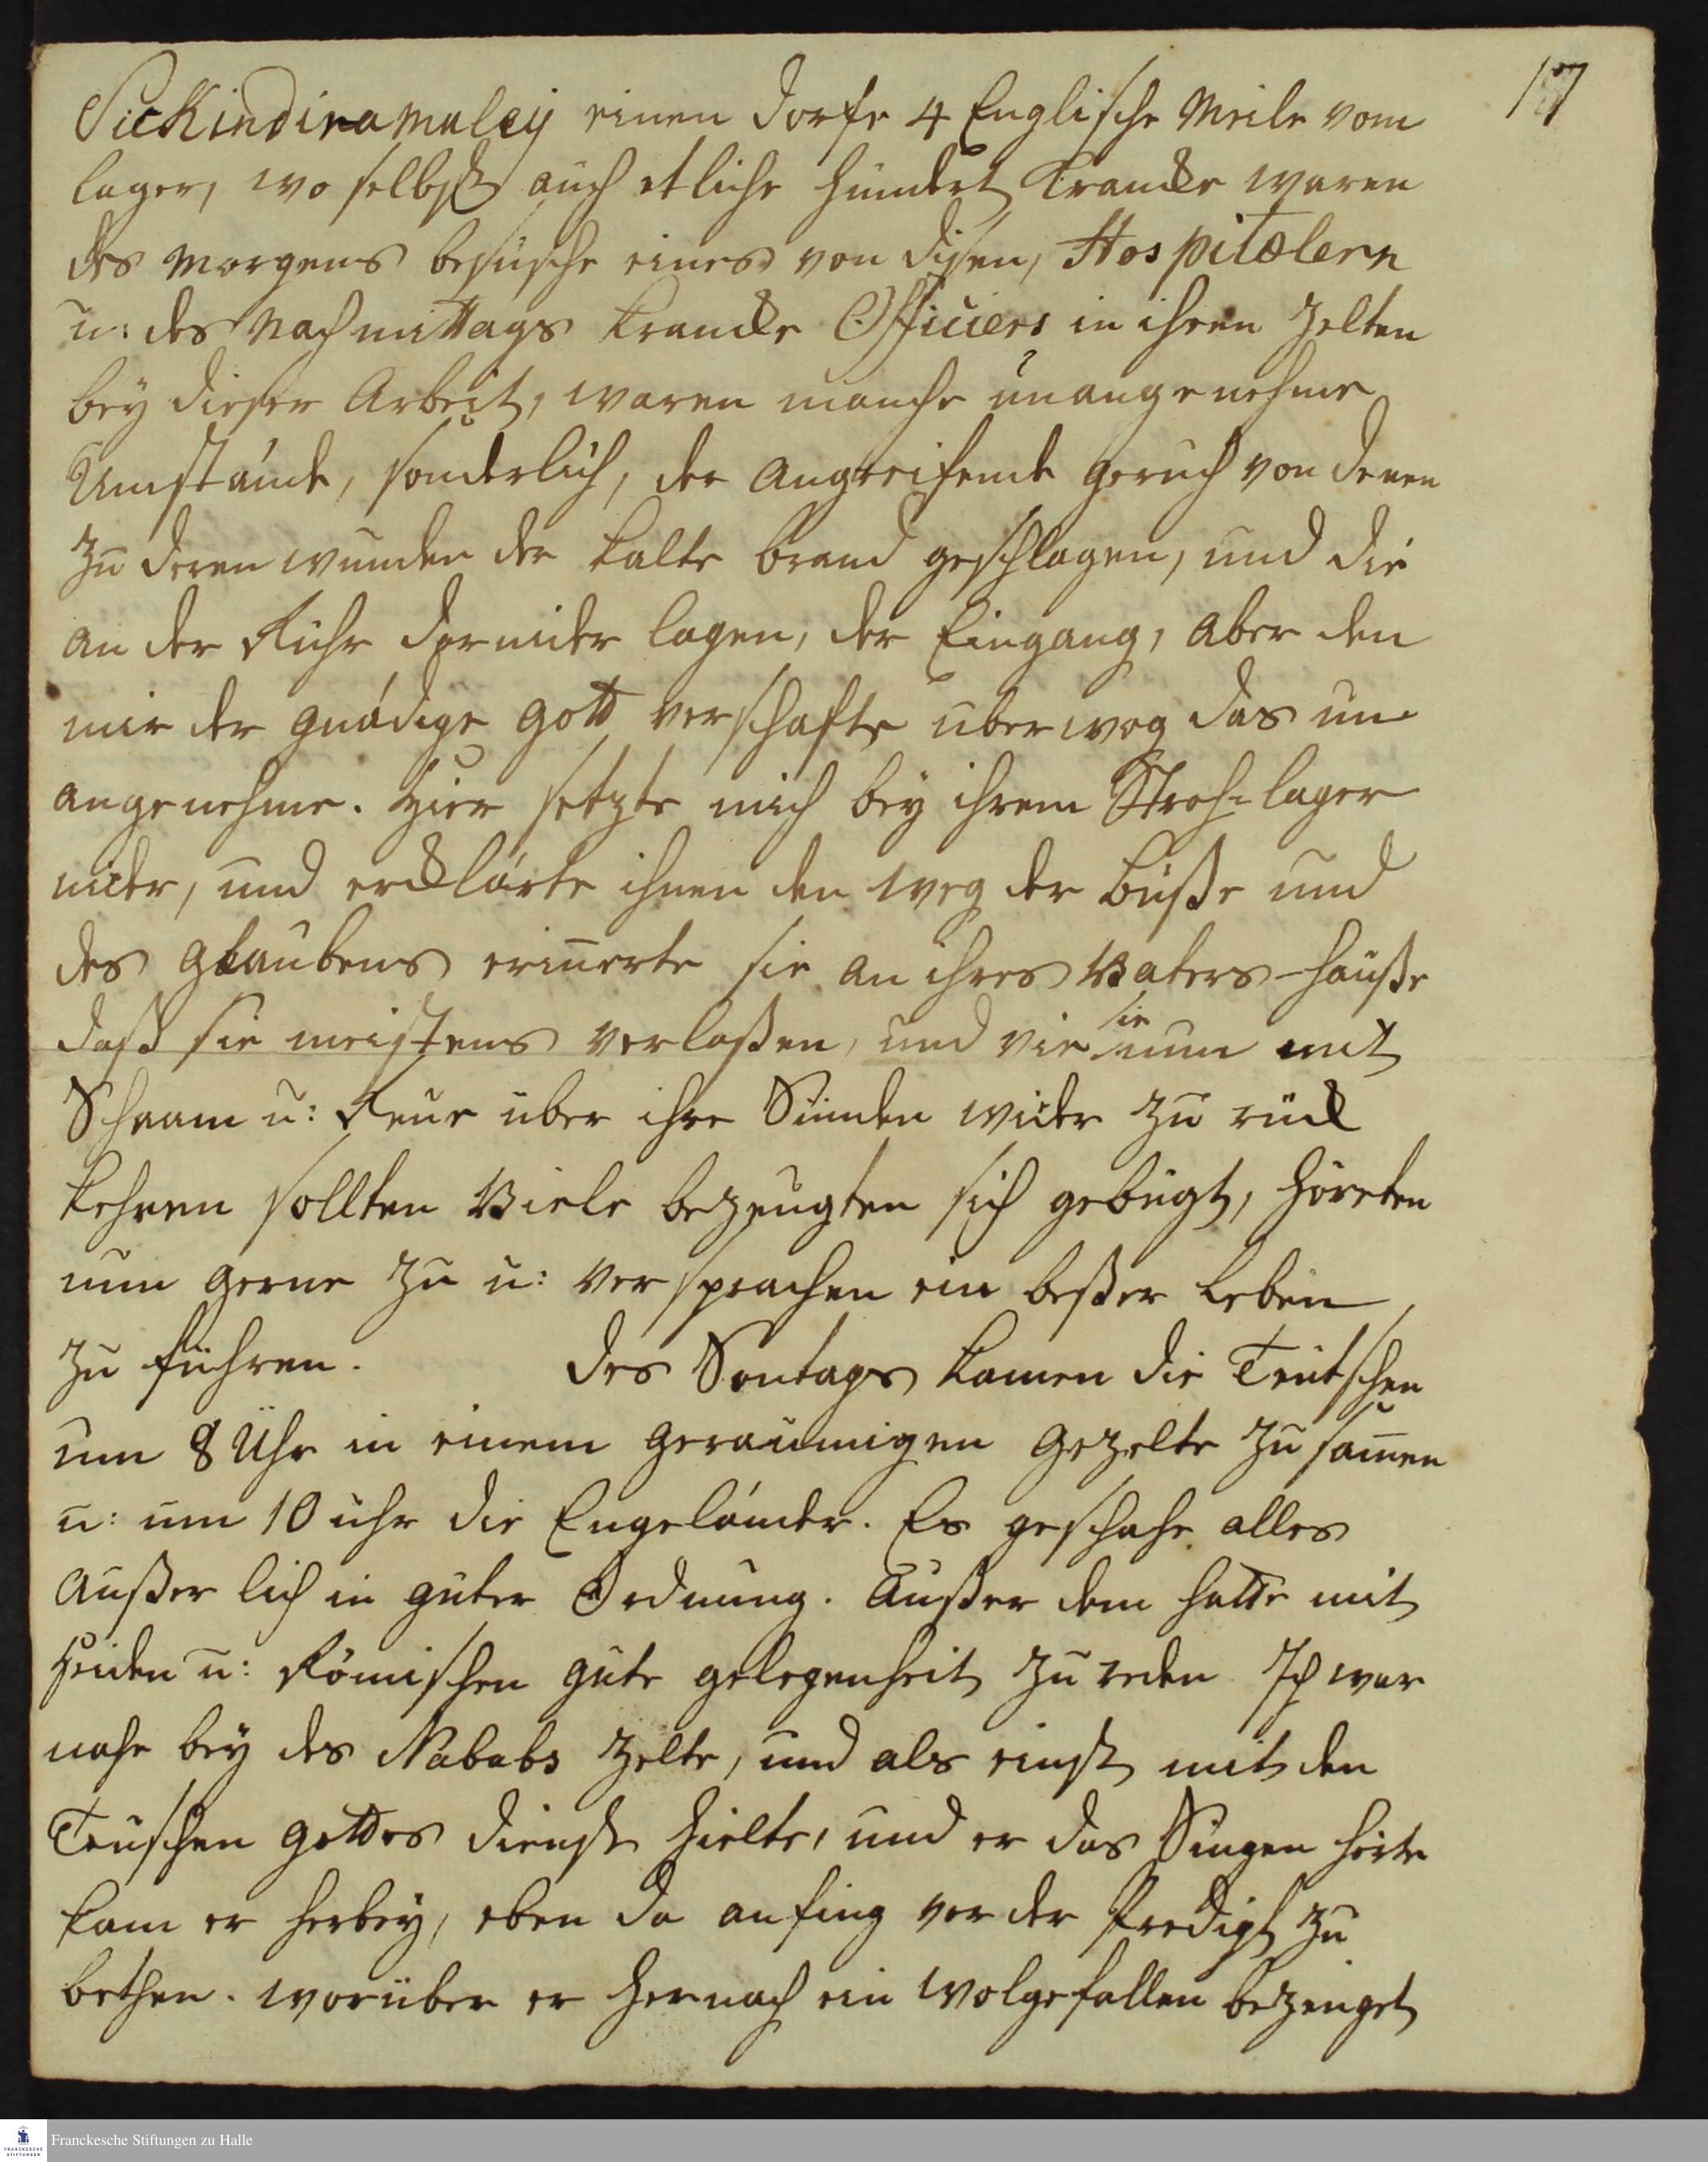 17
Sickindiramaleÿ einen Dorfe 4 Englische Meile vom
Lager, wo selbst auch etliche hundert krancke waren
des Morgens besuche eines von disen, Hospitælern
u: des Nachmittags krancke Officiers in ihren Zelten
beÿ dieser Arbeit, waren manche unangenehme
Umstände, sonderlich, der angreifende Geruch von denen
zu deren wunden der kalte brand geschlagen, und die
an der Ruhr darnider lagen, der Eingang, aber den
mir der gnädige Gott verschafte uberwog das un
angenehme. Hier setzte mich beÿ ihrem Stroh-lager
nider, und ercklärte ihnen den weg der Buße und
des Glaubens erinerte sie an ihres Vaters-hauße
daß sie meistens verlaßen, und wie sie nun mit
Schaam u: Reue uber ihre Sünden wider zu rück
kehren sollten Viele bezeugten sich gebeugt, höreten
nun gerne zu u: versprachen ein beßer Leben
zu führen. Des Sontags kamen die Teutschen
um 8 Uhr in einem geraumigen Gezelte zu samen
u: um 10 uhr die Engeländer. Es geschahe alles
Außer lich in guter Ordnung. Außer dem hatte mit
Heiden u: Römischen gute gelegenheit zu reden Ich war
nahe beÿ des Nababs Zelte, und als einst mit den
Teuschen Gottes dienst hielte, und er das Singen hörte
kam er herbeÿ, eben da anfing vor der Predigt zu
bethen. worüber er hernach ein wolgefallen bezeuget
Franckesche Stiftungen zu Halle